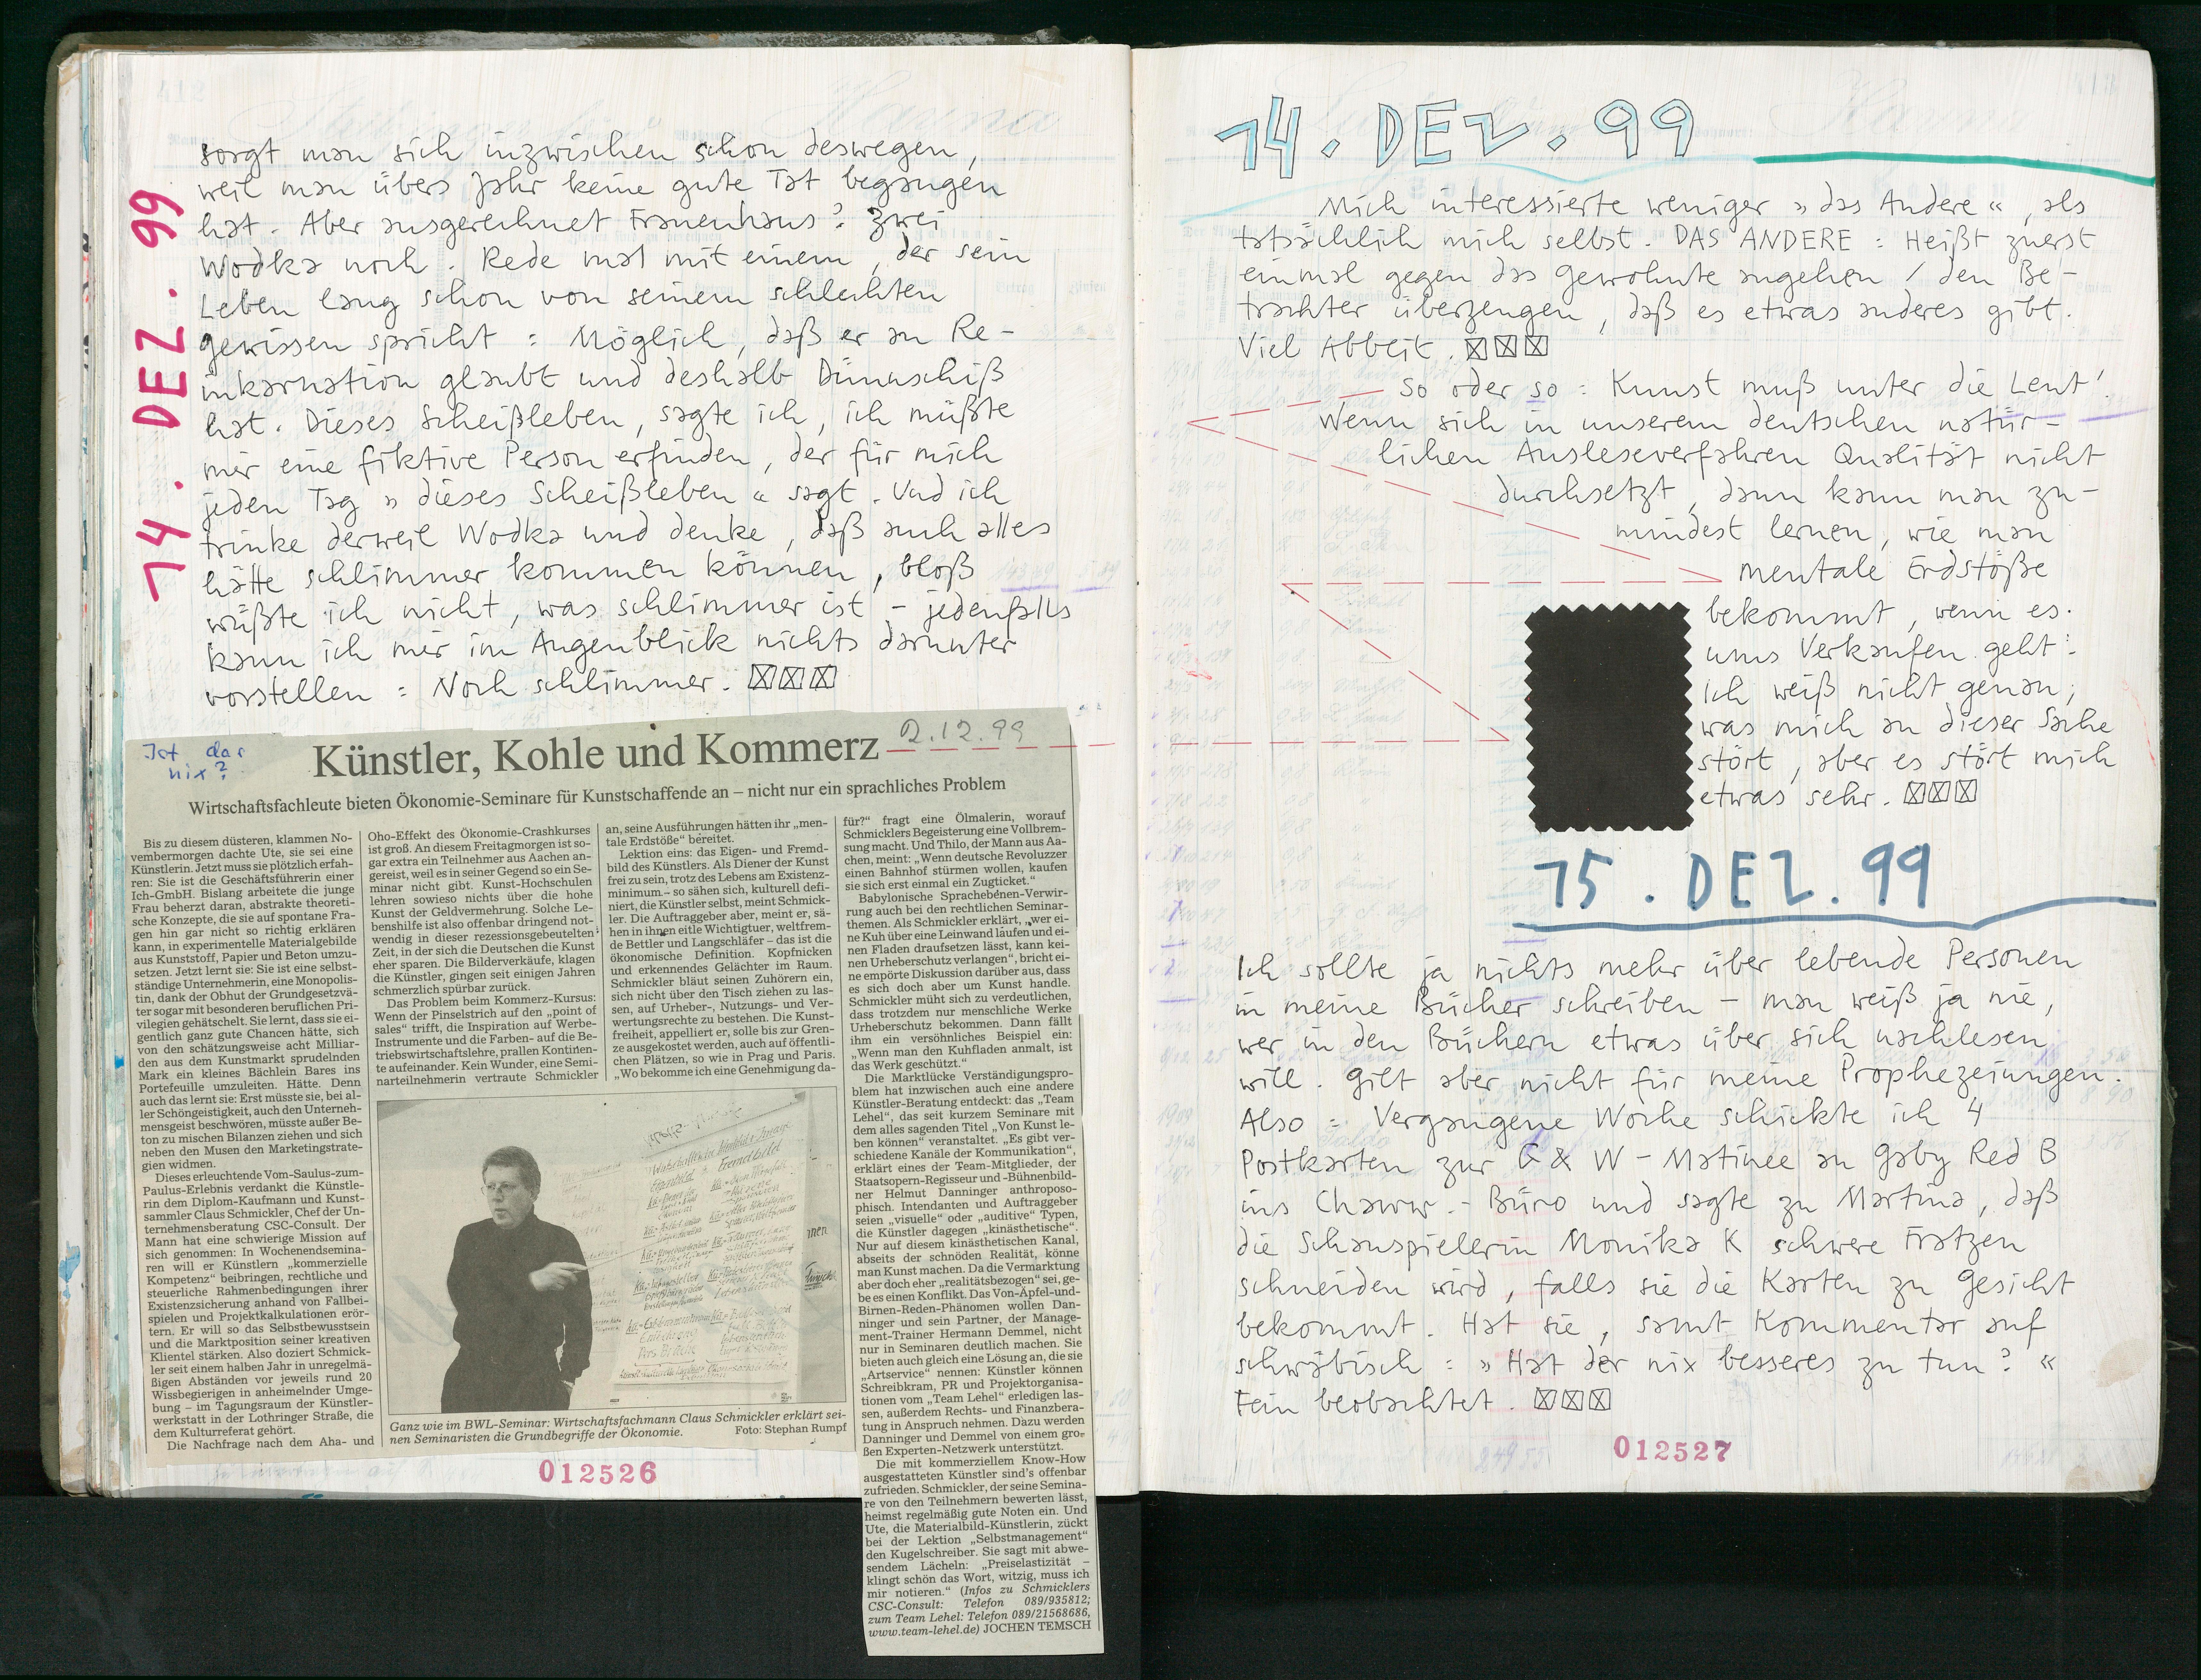 14. DEZ. 99
sorgt man sich inzwischen schon deswegen,
weil man übers Jahr keine gute Tat begangen
hat. Aber ausgerechnet Frauenhaus? Zwei
Wodka noch. Rede mal mit einem, der sein
Leben lang schon von seinem schlechten
gewissen spricht: Möglich, daß er an Re-
inkarnation glaubt und deshalb Dünnschiß
hat. Dieses Scheißleben, sagte ich, ich müßte
mir eine fiktive Person erfinden, der für mich
jeden Tag » dieses Scheißleben « sagt. Und ich
trinke derweil Wodka und denke, daß auch alles
hätte schlimmer kommen können, bloß
wüßte ich nicht, was schlimmer ist – jedenfalls
kann ich mir im Augenblick nichts darunter
vorstellen: Noch schlimmer.
Ist das
nix?
2.12.99
Künstler, Kohle und Kommerz
Wirtschaftsfachleute bieten Ökonomie-Seminare für Kunstschaffende an – nicht nur ein sprachliches Problem
Bis zu diesem düsteren, klammen No-
vembermorgen dachte Ute, sie sei eine
Künstlerin. Jetzt muss sie plötzlich erfah-
ren: Sie ist die Geschäftsführerin einer
Ich-GmbH. Bislang arbeitete die junge
Frau beherzt daran, abstrakte theoreti-
sche Konzepte, die sie auf spontane Fra-
gen hin gar nicht so richtig erklären
kann, in experimentelle Materialgebilde
aus Kunststoff, Papier und Beton umzu-
setzen. Jetzt lernt sie: Sie ist eine selbst-
ständige Unternehmerin, eine Monopolis-
tin, dank der Obhut der Grundgesetzvä-
ter sogar mit besonderen beruflichen Pri-
vilegien gehätschelt. Sie lernt, dass sie ei-
gentlich ganz gute Chancen hätte, sich
von den schätzungsweise acht Milliar-
den aus dem Kunstmarkt sprudelnden
Mark ein kleines Bächlein Bares ins
Portefeuille umzuleiten. Hätte. Denn
auch das lernt sie: Erst müsste sie, bei al-
ler Schöngeistigkeit, auch den Unterneh-
mensgeist beschwören, müsste außer Be-
ton zu mischen Bilanzen ziehen und sich
neben den Musen den Marketingstrate-
gien widmen.
Dieses erleuchtende Vom-Saulus-zum-
Paulus-Erlebnis verdankt die Künstle-
rin dem Diplom-Kaufmann und Kunst-
sammler Claus Schmickler, Chef der Un-
ternehmensberatung CSC-Consult. Der
Mann hat eine schwierige Mission auf
sich genommen: In Wochenendsemina-
ren will er Künstlern „kommerzielle
Kompetenz“ beibringen, rechtliche und
steuerliche Rahmenbedingungen ihrer
Existenzsicherung anhand von Fallbei-
spielen und Projektkalkulationen erör-
tern. Er will so das Selbstbewusstsein
und die Marktposition seiner kreativen
Klientel stärken. Also doziert Schmick-
ler seit einem halben Jahr in unregelmä-
ßigen Abständen vor jeweils rund 20
Wissbegierigen in anheimelnder Umge-
bung – im Tagungsraum der Künstler-
werkstatt in der Lothringer Straße, die
dem Kulturreferat gehört.
Die Nachfrage nach dem Aha- und
Oho-Effekt des Ökonomie-Crashkurses
ist groß. An diesem Freitagmorgen ist so-
gar extra ein Teilnehmer aus Aachen an-
gereist, weil es in seiner Gegend so ein Se-
minar nicht gibt. Kunst-Hochschulen
lehren sowieso nichts über die hohe
Kunst der Geldvermehrung. Solche Le-
benshilfe ist also offenbar dringend not-
wendig in dieser rezessionsgebeutelten
Zeit, in der sich die Deutschen die Kunst
eher sparen. Die Bilderverkäufe, klagen
die Künstler, gingen seit einigen Jahren
schmerzlich spürbar zurück.
Das Problem beim Kommerz-Kursus:
Wenn der Pinselstrich auf den „point of
sales“ trifft, die Inspiration auf Werbe-
Instrumente und die Farben- auf die Be-
triebswirtschaftslehre, prallen Kontinen-
te aufeinander. Kein Wunder, eine Semi-
narteilnehmerin vertraute Schmickler
an, seine Ausführungen hätten ihr „men-
tale Erdstöße“ bereitet.
Lektion eins: das Eigen- und Fremd-
bild des Künstlers. Als Diener der Kunst
frei zu sein, trotz des Lebens am Existenz-
minimum – so sähen sich, kulturell defi-
niert, die Künstler selbst, meint Schmick-
ler. Die Auftraggeber aber, meint er, sä-
hen in ihnen eitle Wichtigtuer, weltfrem-
de Bettler und Langschläfer – das ist die
ökonomische Definition. Kopfnicken
und erkennendes Gelächter im Raum.
Schmickler bläut seinen Zuhörern ein,
sich nicht über den Tisch ziehen zu las-
sen, auf Urheber-, Nutzungs- und Ver-
wertungsrechte zu bestehen. Die Kunst-
freiheit, appelliert er, solle bis zur Gren-
ze ausgekostet werden, auch auf öffentli-
chen Plätzen, so wie in Prag und Paris.
„Wo bekomme ich eine Genehmigung da-
für?“ fragt eine Ölmalerin, worauf
Schmicklers Begeisterung eine Vollbrem-
sung macht. Und Thilo, der Mann aus Aa-
chen, meint: „Wenn deutsche Revoluzzer
einen Bahnhof stürmen wollen, kaufen
sie sich erst einmal ein Zugticket.“
Babylonische Sprachebenen-Verwir-
rung auch bei den rechtlichen Seminar-
themen. Als Schmickler erklärt, „wer ei-
ne Kuh über eine Leinwand laufen und ei-
nen Fladen draufsetzen lässt, kann kei-
nen Urheberschutz verlangen“, bricht ei-
ne empörte Diskussion darüber aus, dass
es sich doch aber um Kunst handle.
Schmickler müht sich zu verdeutlichen,
dass trotzdem nur menschliche Werke
Urheberschutz bekommen. Dann fällt
ihm ein versöhnliches Beispiel ein:
„Wenn man den Kuhfladen anmalt, ist
das Werk geschützt.“
Die Marktlücke Verständigungspro-
blem hat inzwischen auch eine andere
Künstler-Beratung entdeckt: das „Team
Lehel“, das seit kurzem Seminare mit
dem alles sagenden Titel „Von Kunst le-
ben können“ veranstaltet. „Es gibt ver-
schiedene Kanäle der Kommunikation“,
erklärt eines der Team-Mitglieder, der
Staatsopern-Regisseur und -Bühnenbild-
ner Helmut Danninger anthroposo-
phisch. Intendanten und Auftraggeber
seien „visuelle“ oder „auditive“ Typen,
die Künstler dagegen „kinästhetische“.
Nur auf diesem kinästhetischen Kanal,
abseits der schnöden Realität, könne
man Kunst machen. Da die Vermarktung
aber doch eher „realitätsbezogen“ sei, ge-
be es einen Konflikt. Das Von-Äpfel-und-
Birnen-Reden-Phänomen wollen Dan-
ninger und sein Partner, der Manage-
ment-Trainer Hermann Demmel, nicht
nur in Seminaren deutlich machen. Sie
bieten auch gleich eine Lösung an, die sie
„Artservice“ nennen: Künstler können
Schreibkram, PR und Projektorganisa-
tionen vom „Team Lehel“ erledigen las-
sen, außerdem Rechts- und Finanzbera-
tung in Anspruch nehmen. Dazu werden
Danninger und Demmel von einem gro-
ßen Experten-Netzwerk unterstützt.
Die mit kommerziellem Know-How
ausgestatteten Künstler sind's offenbar
zufrieden. Schmickler, der seine Semina-
re von den Teilnehmern bewerten lässt,
heimst regelmäßig gute Noten ein. Und
Ute, die Materialbild-Künstlerin, zückt
bei der Lektion „Selbstmanagement“
den Kugelschreiber. Sie sagt mit abwe-
sendem Lächeln: „Preiselastizität –
klingt schön das Wort, witzig, muss ich
mir notieren.“ (Infos zu Schmicklers
CSC-Consult: Telefon 089/935812;
zum Team Lehel: Telefon 089/21568686,
www.team-lehel.de) JOCHEN TEMSCH
Ganz wie im BWL-Seminar: Wirtschaftsfachmann Claus Schmickler erklärt sei-
nen Seminaristen die Grundbegriffe der Ökonomie. Foto: Stephan Rumpf
012526
14. DEZ. 99
Mich interessierte weniger » das Andere «, als
tatsächlich mich selbst. DAS ANDERE: Heißt zuerst
einmal gegen das gewohnte angehen / den Be-
trachter überzeugen, daß es etwas anderes gibt.
Viel Abbeit.
So oder so: Kunst muß unter die Leut'!
Wenn sich in unserem deutschen natür-
lichen Ausleseverfahren Qualität nicht
durchsetzt, dann kann man zu-
mindest lernen, wie man
mentale Erdstöße
bekommt, wenn es
ums Verkaufen geht:
Ich weiß nicht genau,
was mich an dieser Sache
stört, aber es stört mich
etwas sehr.
15. DEZ. 99
Ich sollte ja nichts mehr über lebende Personen
in meine Bücher schreiben – man weiß ja nie,
wer in den Büchern etwas über sich nachlesen
will. gilt aber nicht für meine Prophezeiungen.
Also: Vergangene Woche schickte ich 4
Postkarten zur G & W – Matinee an Gaby Red B
ins Chaww.-Büro und sagte zu Martina, daß
die Schauspielerin Monika K schwere Fratzen
schneiden wird, falls sie die Karten zu Gesicht
bekommt. Hat sie, samt Kommentar auf
schwäbisch: » Hat der nix besseres zu tun? «
Fein beobachtet.
012527